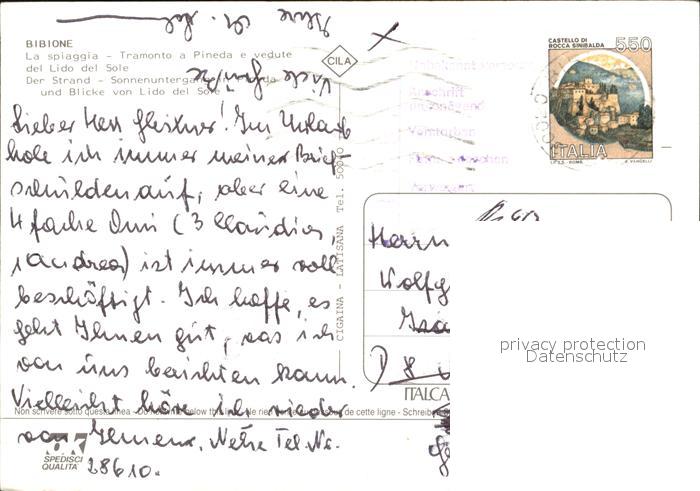 BIBIONE
La spiaggia - Tramonto a Pineda e vedute
del Lido del Sole
Der Strand - Sonnenuntergang
und Blicke von Lido del Sole
Viele Grüße
CILA
CASTELLO DI
ROCCA SINIBALDA
550
ITALIA
I.P.Z.S. - ROMA
E. VANGELLI
Anschrift
Verstorben
Lieber Herr Gleixner! Im Urlaub
hole ich immer meiner Brief-
schulden auf, aber eine
4 fache Omi (3 Claudia,
1 Andrea) ist immer voll
beschäftigt. Ich hoffe, es
geht Ihnen gut, was ich
von uns berichten kann.
Vielleicht höre ich wieder
von Ihnen, Neue Tel. Nr.
28610.
CIGAINA - LATISANA Tel.
Herrn
Wolfg
D 8
ITALCA
privacy protection
Datenschutz
Non scrivere sotto questa linea
below this line
de cette ligne - Schreiben
SPEDISCI
QUALITÀ